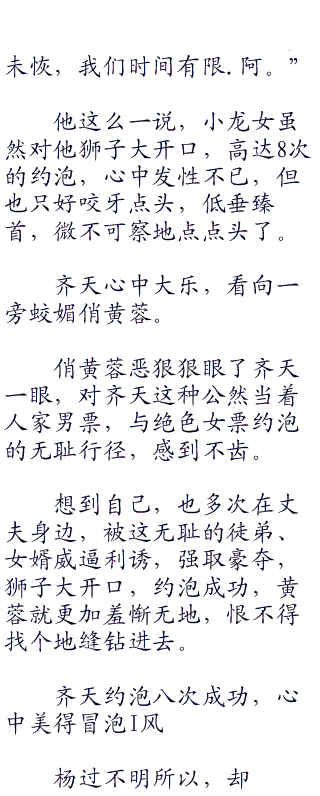 未恢，我们时间有限.阿。”
他这么一说，小龙女虽
然对他狮子大开口，高达8次
的约泡，心中发性不已，但
也只好咬牙点头，低垂臻
首，微不可察地点点头了。
齐天心中大乐，看向一
旁蛟媚俏黄蓉。
俏黄蓉恶狠狠眼了齐天
一眼，对齐天这种公然当着
人家男票，与绝色女票约泡
的无耻行径，感到不齿。
想到自己，也多次在丈
夫身边，被这无耻的徒弟、
女婿威逼利诱，强取豪夺，
狮子大开口，约泡成功，黄
蓉就更加羞惭无地，恨不得
找个地缝钻进去。
齐天约泡八次成功，心
中美得冒泡I风
杨过不明所以，却